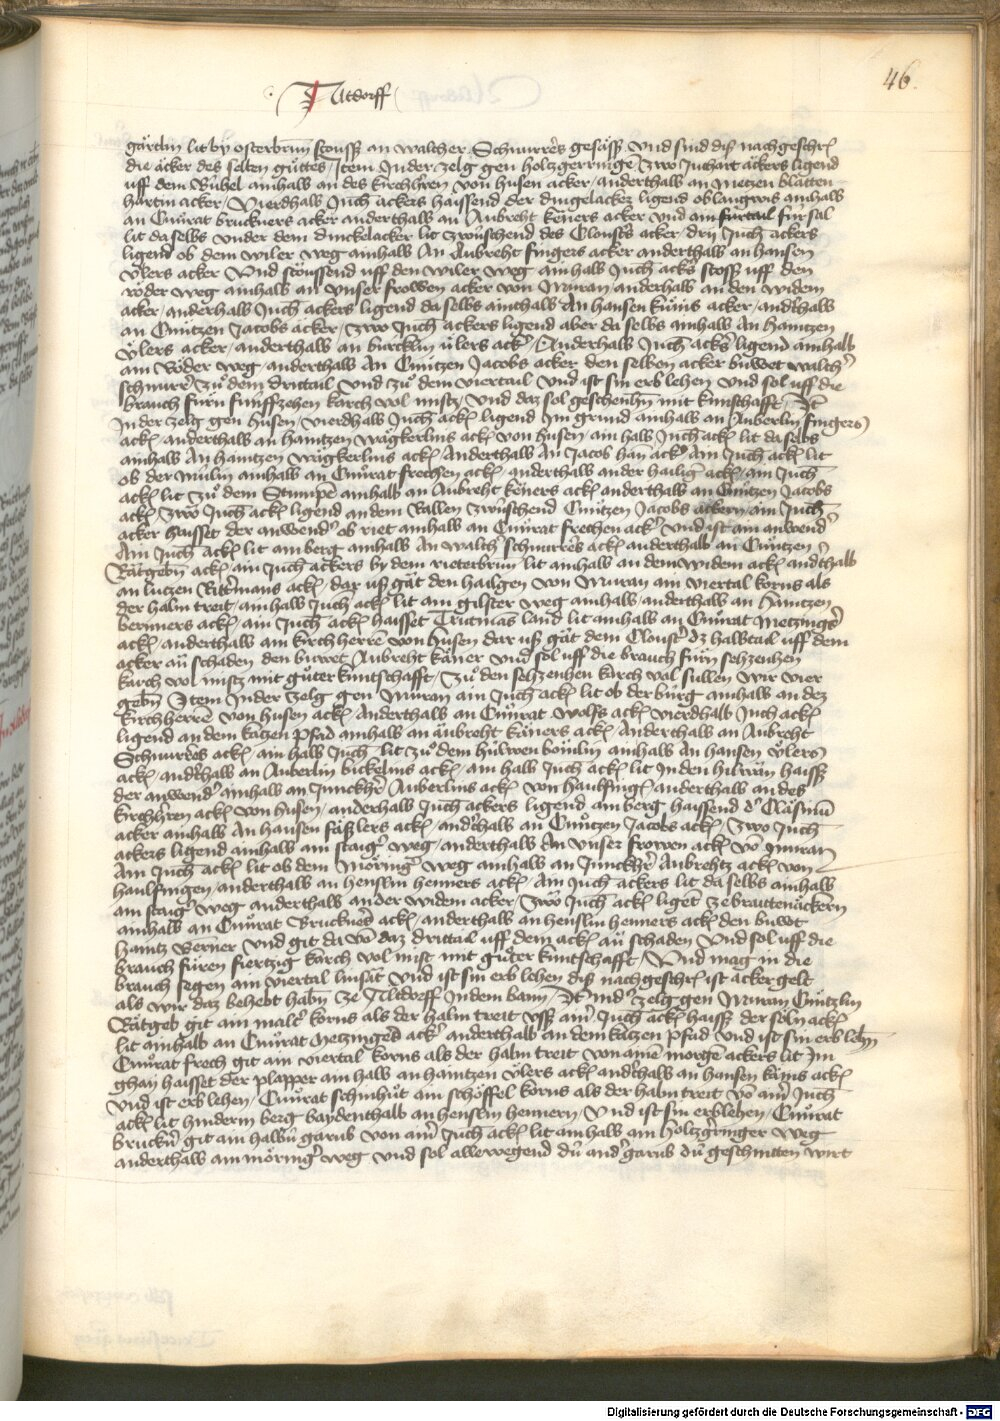 46.
Altdorff
gärtlin lit by osterbrun stousß an walther Schnurrers gesäsß Und sind diß nachgeschrɩ
die äcker des selben guttes Item In der zelg gen holtzgerringe zwo Juchart äckers ligend
uff dem Bühel ainhalb an des kirchhren von husen acker anderthalb an metzen blatten
hartin acker vierdhalb Juch ackers haissend der dingelacker ligend ob langwis ainhalb
an Cunrat bruckners acker anderthalb an Aubreht keners acker und ain furtail fur sal
lit da selbs under dem dinckelacker lit zwüschend des Closters acker dry Juch ackers
ligend ob dem wiler weg ainhalb An Aubreht fingers acker anderthalb an hansen
ülers acker Und stoussend uff den wiler weg ainhalb Juch acks stosß uff den
röder weg ainhalb an unser frowen acker von Muran anderhalb an den widem
acker anderhalb Juch ackers ligend da selbs ainthalb An hansen küns acker andthalb
an Cuntzen Jacobs acker zwo Juch ackers ligend aber da selbs ainhalb An haintzen
ülers acker anderthalb an burcklin ülers ack Anderhalb Juch acks ligend ainhalb
am Röder weg anderthalb An Cuntzen Jacobs acker den selben acker buwet walth
schnurr zu dem drittail und zu dem viertail und ist sin erb lehen und sol uff die
brauch furn funffzehen karch vol mistz und daz sol geschenhn mit kuntschafft It
In der zelg gen husen vierdhalb Juch ack ligend Im grund ainhalb an Auberlin fingers
ack anderthalb an haintzen wägkerlins ack von husen ain halb Juch ack lit da selbs
ainhalb An haintzen wägkerlins ack Anderthalb An Jacob han ack Ain Juch ack lit
ob der mülin ainhalb an Cunrat frechen ack anderthalb an der hailig ack ain Juch
ack lit zu dem Stumpe ainhalb an Aubreht keners ack anderthalb an Cuntzen Jacobs
ack zwo Juch ack ligend an dem vallen zwüschend Cuntzen Jacobs äckern ain Juch
acker haisset der anwend ob riet ainhalb an Cunrat frechen ack und ist ain anwend
Ain Juch ack lit am berg ainhalb An walth schnurrers ack anderthalb an Cuntzen
Rätgeben ack ain Juch ackers by dem rieterbrun lit ainhalb an dem widem ack andthalb
an lutzen Rittmans ack dar uß gät den hailgen von Muran ain viertal korns als
der halm treit ainhalb Juch ack lit am gilster weg ainhalb anderthalb an haintzen
berinners ack ain Juch ack haisset Trutmans land lit ainhalb an Cunrat metzings
ack anderthalb am kirchherre von husen dar uß gät dem Clouster dz halbtail uff dem
acker an schaden den buwet Aubreht käner und sol uff die brauch furn sehzenhen
karch vol mistz mit guter kuntschafft zu den sehzenhen karch vol sullen wir vier
geben Item In der zelg gen Muran ain Juch ack lit ob der burg ainhalb an dez
kirchherre von husen ack Anderthalb an Cunrat wolfs ack vierdhalb Juch ack
ligend an dem katzen pfad ainhalb an aubreht käners ack Anderthalb an Aubreht
Schnurrers ack ain halb Juch lit zu dem hülwen böumlin ainhalb An hansen ülers
ack andthalb an Auberlin bickelins ack ain halb Juch ack lit In den hülwan haisß
der anwend ainhalb an Junckher Auberlins ack von haulfing anderthalb an des
kirchhren ack von husen anderhalb Juch ackers ligend am berg haissend d Cläsinn
acker ainhalb An hansen säßlers ack andthalb an Cuntzen Jacobs ack zwo Juch
ackers ligend ainhalb am staig weg anderthalb An unser frowen ack vo Muran
Ain Juch ack lit ob dem möring weg ainhalb an Junckher Aubrehtz ack von
haulfingen anderthalb an henslin henners ack Ain Juch ackers lit da selbs ainhalb
am staig weg anderthalb an der widem acker zwo Juch ack liget ze brattenäckern
ainhalb an Cunrat Bruckners ack anderthalb an henslin henners ack den buwet
haintz Berner und git da vo daz drittail uff dem ack an schaden Und sol uff die
brauch füren fiertzig karch vol mist mit guter kuntschafft Und mag in die
brauch segen ain viertal linsat und ist sin erb lehen diß nachgeschrɩ ist acker gelt
als wir daz behebt habn ze Altdorff In dem bann It In d zelg gen Muran Cuntzlin
Rätgeb git ain malt korns als der halm treit uss aim Juch ack haisß der soln ack
lit ainhalb an Cunrat metzingers ack anderthalb an dem katzen pfad und ist sin erb lehn
Cunrat frech git ain viertal korns als der halm treit von aine morge ackers lit Im
ghay haisset der plapper ain halb an haintzen ülers ack andthalb an hansen käns ack
und ist erb lehen Cunrat schinhut ain schöffel korns als der halm treit vo aim Juch
ack lit hinderm berg baydenthalb an henslin hennern Und ist sin erblehen Cunrat
bruckn git ain halbn garub von aim Juch ack lit ainhalb am holtzgringer weg
anderthalb am möring weg und sol allewegend du and garub du geschnitten wirt
Digitalisierung gefördert durch die Deutsche Forschungsgemeinschaft - DFG